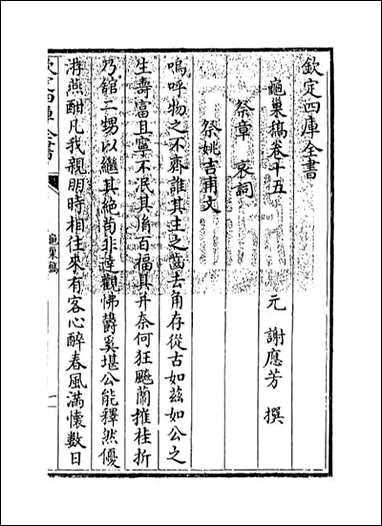 欽定四庫全書
龜巢稿卷十五
元 謝應芳 撰
祭章 哀詞
祭姚吉甫文
嗚呼物之不齊誰其主之齒去角存從古如兹如公之
生壽富且寧不泯其脩百福具并奈何狂飈蘭摧桂折
乃舘二甥以繼其絶茍非達觀怫欝奚堪公能釋然優
游燕酣凡我親朋時相往來有客心醉春風滿懷數日
欽定四庫全書
龜巢稿
一